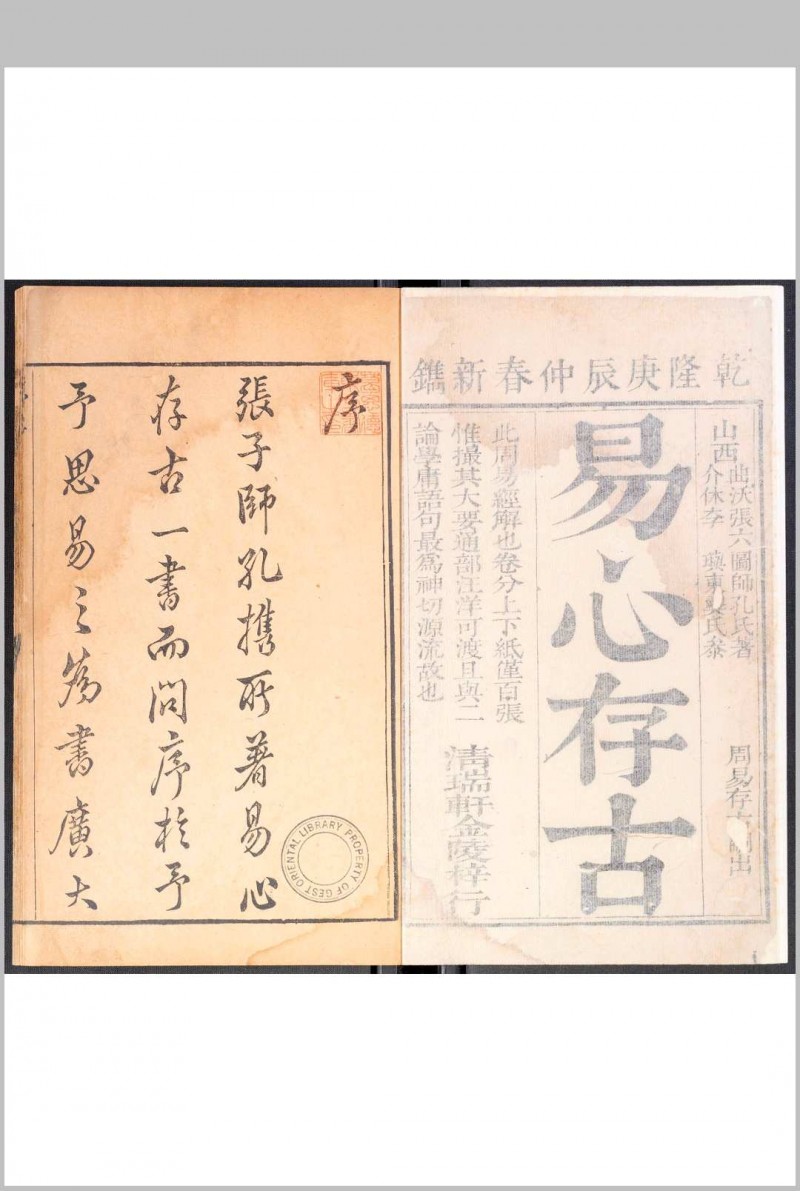 乾隆庚辰仲春新鐫
山西
曲沃張六圖師孔氏著
介休李
周易存古
易心存古
此周易經解也卷分上下紙僅百張
惟撮其大要通部汪洋可渡且與二
論學庸語句最為神切源流故也
清瑞軒金陵梓行
序
張子師孔攜所著易心
存古一書而問序於予
予思易之為書廣大
PROPERTY OF GEST ORIENTAL LIBRARY